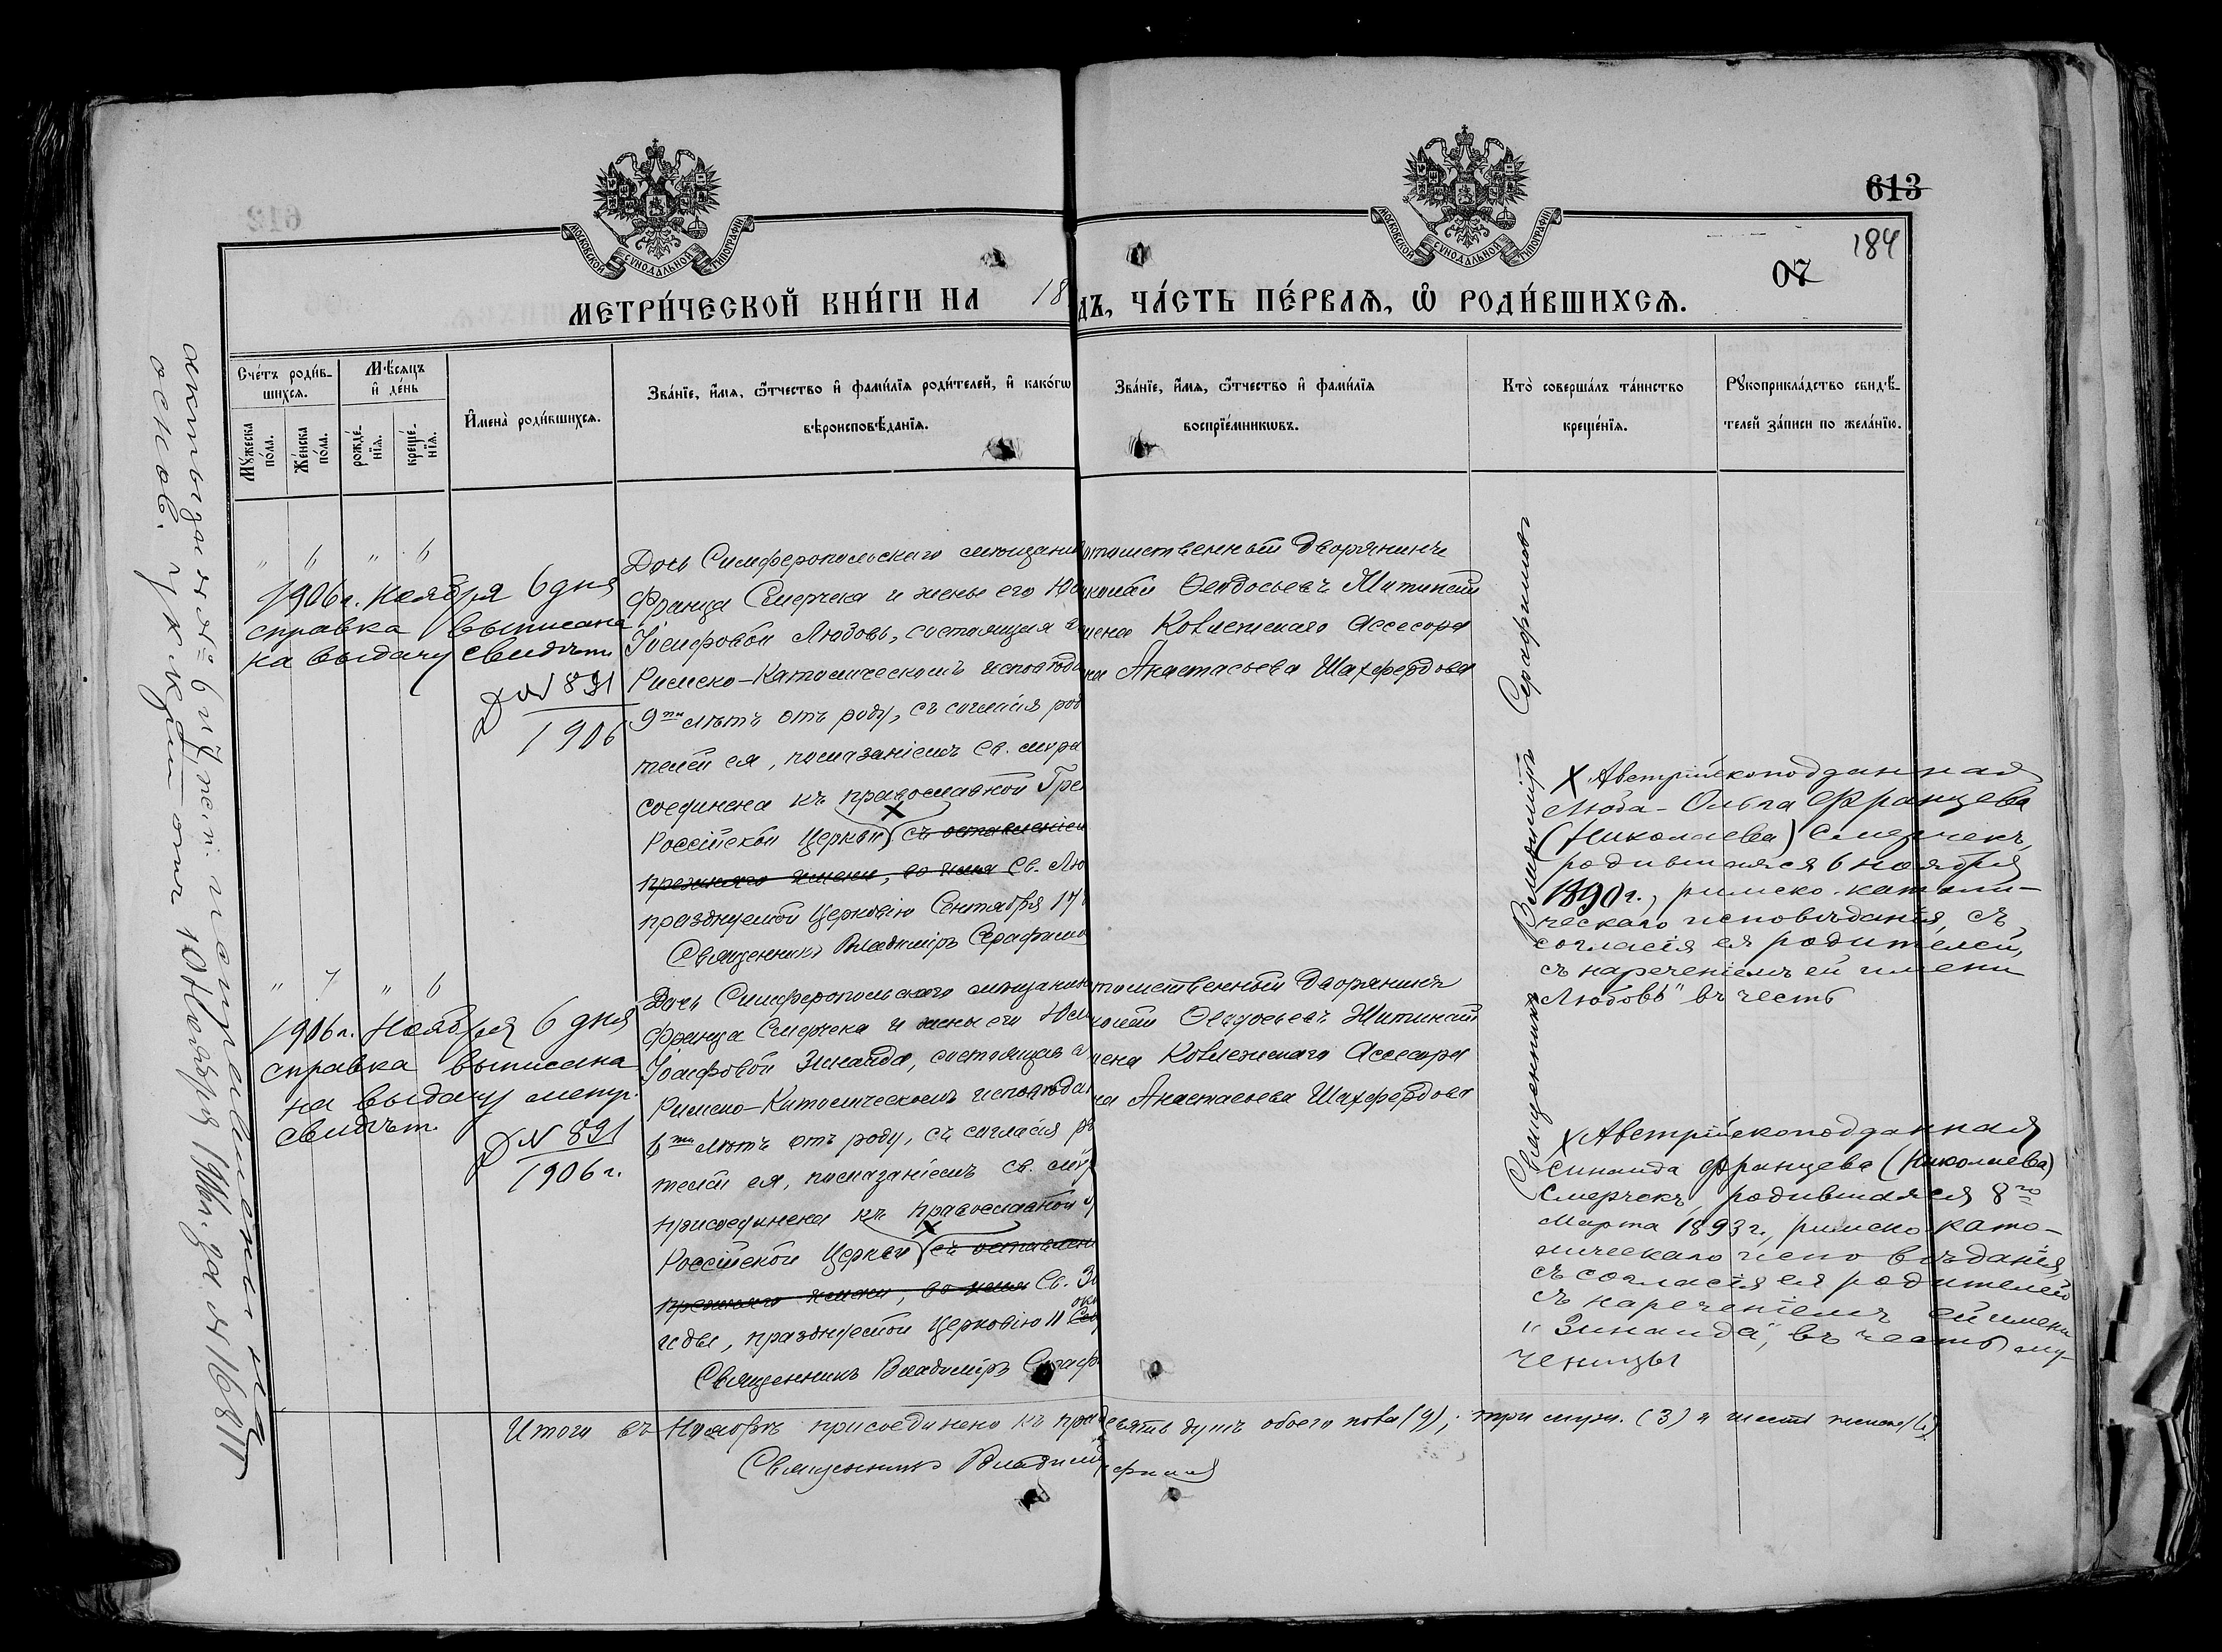 613
184
07
МОСКОВСКОЙ СѴНОДАЛЬНОЙ ТИПОГРАФІИ
МОСКОВСКОЙ СѴНОДАЛЬНОЙ ТИПОГРАФІИ
МЕТРИ́ЧЕСКОЙ КНИ́ГИ НА 18
ДЪ, ЧА́СТЬ ПЕ́РВАѦ, Ѽ РОДИ́ВШИХСѦ.
Сче́тъ роди́в-
шихсѧ.
Мꙋ́жеска по́ла.
Же́нска по́ла.
Мѣ́сѧцъ и де́нь
рожде́-нїѧ.
креще́-нїѧ.
Имена̀ роди́вшихсѧ.
Зва́нїе, и́мѧ, ѻ́тчество и фами́лїѧ роди́телей, и како́гѡ
вѣроисповѣ́данїѧ.
Зва́нїе, и́мѧ, ѻ́тчество и фами́лїѧ
воспрїе́мникѡвъ.
Кто̀ соверша́лъ та́инство
креще́нїѧ.
Рꙋкоприкла́дство свидѣ́-
телей за́писи по жела́нїю.
" 6 " 6
1906 г. Ноября 6 дня
справка выписана
на выдачу свидѣт.
Д № 891
1906
Дочь Симферопольскаго мѣщани
Франца Смерчека и жены его Юл
Іосифовой Любовь, состоящая в
Римско-Католическомъ исповѣда
9ти лѣтъ отъ роду, съ согласія род
телей ея, помазаніемъ Св. мѵра
соединена къ православной Гре
Россійской Церкви съ оставленіем
прежняго имени, во имя Св. Лю
празднуемой Церковію Сентября 17
Священникъ Владиміръ Серафимо
отомственный Дворянинъ
колай Ѳеодосьевъ Житинскій
жена Коллежскаго Ассесора
на Анастасьева Шахфердова
Священникъ Владиміръ Серафимовъ
X Австрійскоподданная
Люба-Ольга Францева
(Николаева) Смерчекъ,
родившаяся 6 ноября
1890 г., римско-католи-
ческаго исповѣданія, съ
согласія ея родителей,
съ нареченіемъ ей имени
"Любовь" въ честь
" 7 " 6
1906 г. Ноября 6 дня
справка выписана
на выдачу метр.
свидѣт.
Д № 891
1906 г.
Дочь Симферопольскаго мѣщанин
Франца Смерчека и жены его Юл
Іосифовой Зинаида, состоящая в
Римско-Католическомъ исповѣдан
6ти лѣтъ отъ роду, съ согласія ро
телей ея, помазаніемъ св. мѵр
присоединена къ православной
Россійской Церкви съ оставлені
прежняго имени, во имя Св. Зи
окт
иды, празднуемой Церковію 11
Священникъ Владиміръ Сераф
отомственный Дворянинъ
колай Ѳеодосьевъ Житинскій
жена Коллежскаго Ассесора
на Анастасьева Шахфердова
X Австрійскоподданная
Зинаида Францева (Николаева)
Смерчекъ, родившаяся 8го
Марта 1893 г., римско-като-
лическаго исповѣданія,
съ согласія ея родителей
съ нареченіемъ ей имени
"Зинаида", въ честь му-
ченицы
Итого въ Ноябрѣ присоединено къ прав
евять душъ обоего пола (9); три муж. (3) и шесть женск. (6)
Священникъ Владимі
рафимов
№ 6 и 7 исправлены на
основ. указа отъ 10 Ноября за № 16811